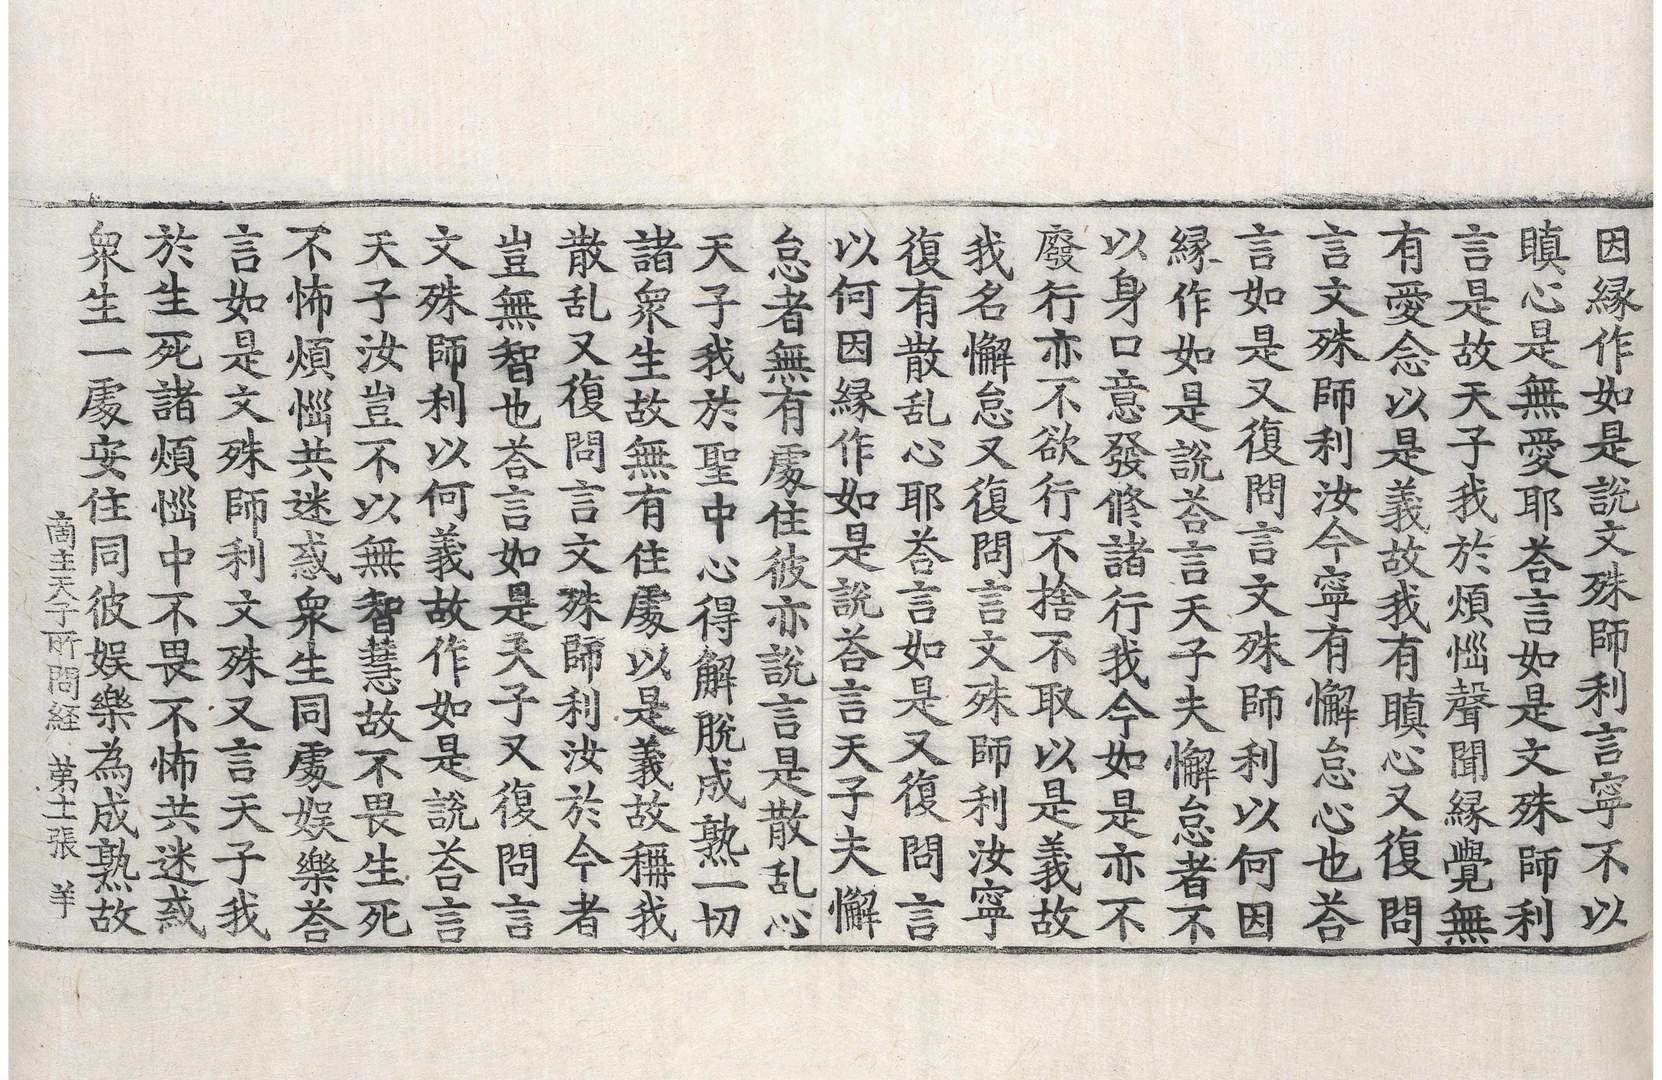 因縁作如是說文殊師利言寧不以
瞋心是無愛耶荅言如是文殊師利
言是故天子我於煩惱聲聞縁覺無
有愛念以是義故我有瞋心又復問
言文殊師利汝今寧有懈怠心也荅
言如是又復問言文殊師利以何因
縁作如是說荅言天子夫懈怠者不
以身口意發修諸行我今如是亦不
廢行亦不欲行不捨不取以是義故
我名懈怠又復問言文殊師利汝寧
復有散乱心耶荅言如是又復問言
以何因縁作如是說荅言天子夫懈
怠者無有處住彼亦說言是散乱心
天子我於聖中心得解脫成熟一切
諸衆生故無有住處以是義故稱我
散乱又復問言文殊師利汝於今者
豈無智也荅言如是天子又復問言
文殊師利以何義故作如是說荅言
天子汝豈不以無智慧故不畏生死
不怖煩惱共迷惑衆生同處娛樂荅
言如是文殊師利文殊又言天子我
於生死諸煩惱中不畏不怖共迷惑
衆生一處安住同彼娛樂為成熟故
商主天子所問経 第十一張 羊